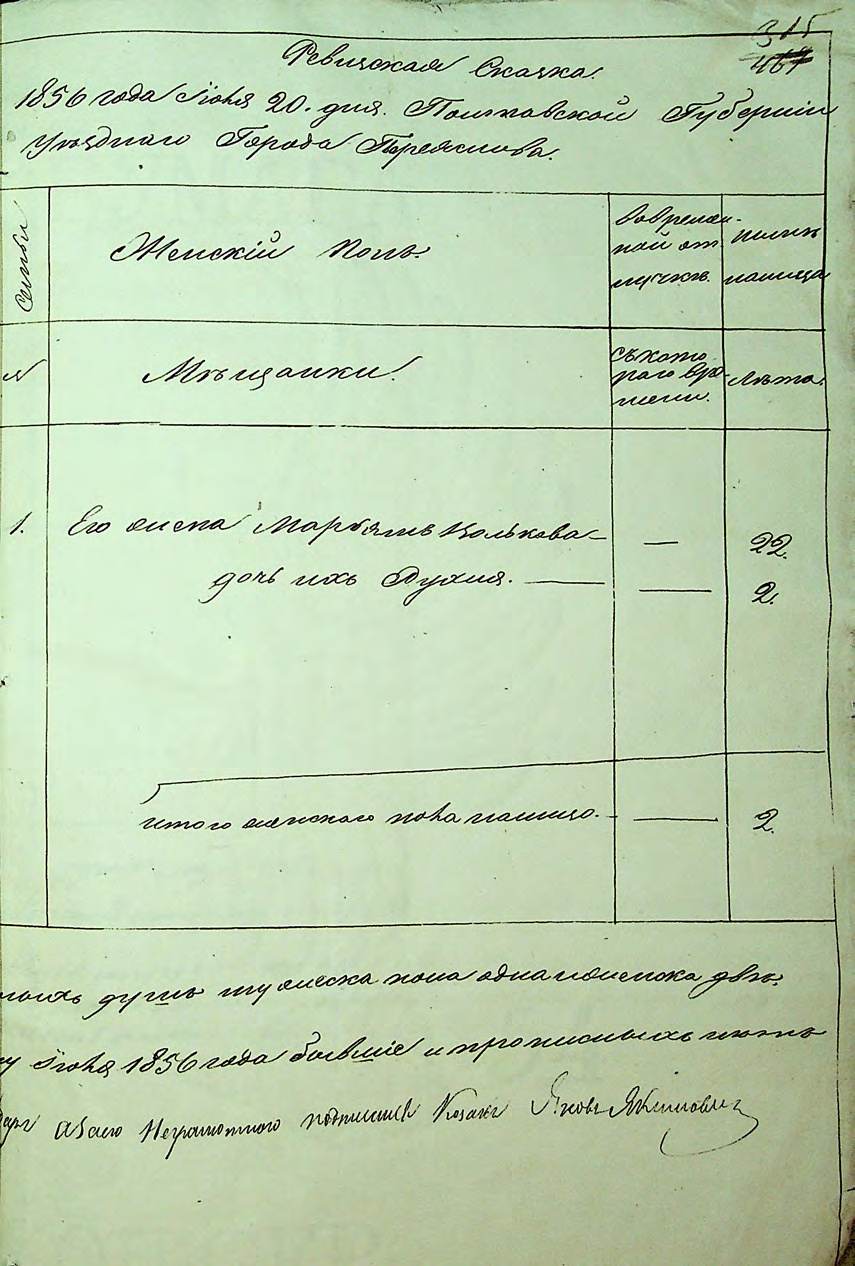 315
467
Ревизская Сказка.
1856 года Іюня 20. дня. Полтавской Губерніи
Уѣзднаго Города Переяслова.
Семьи
Женскій Полъ.
Во времен-
ной от
лучкѣ.
Нынѣ
налицо
№
Мѣщанки.
Съ кото
раго вре-
мени.
Лѣта.
1. Его жена Марьямъ Волькова — 22.
дочь ихъ Рухля. — — 2.
итого женскаго пола налицо. — 2.
душъ мужеска пола одна женска двѣ.
Іюня 1856 года бывшіе и прописныхъ нѣтъ
а за его Неграмотного подписался Козакъ Яковъ Якимовичъ